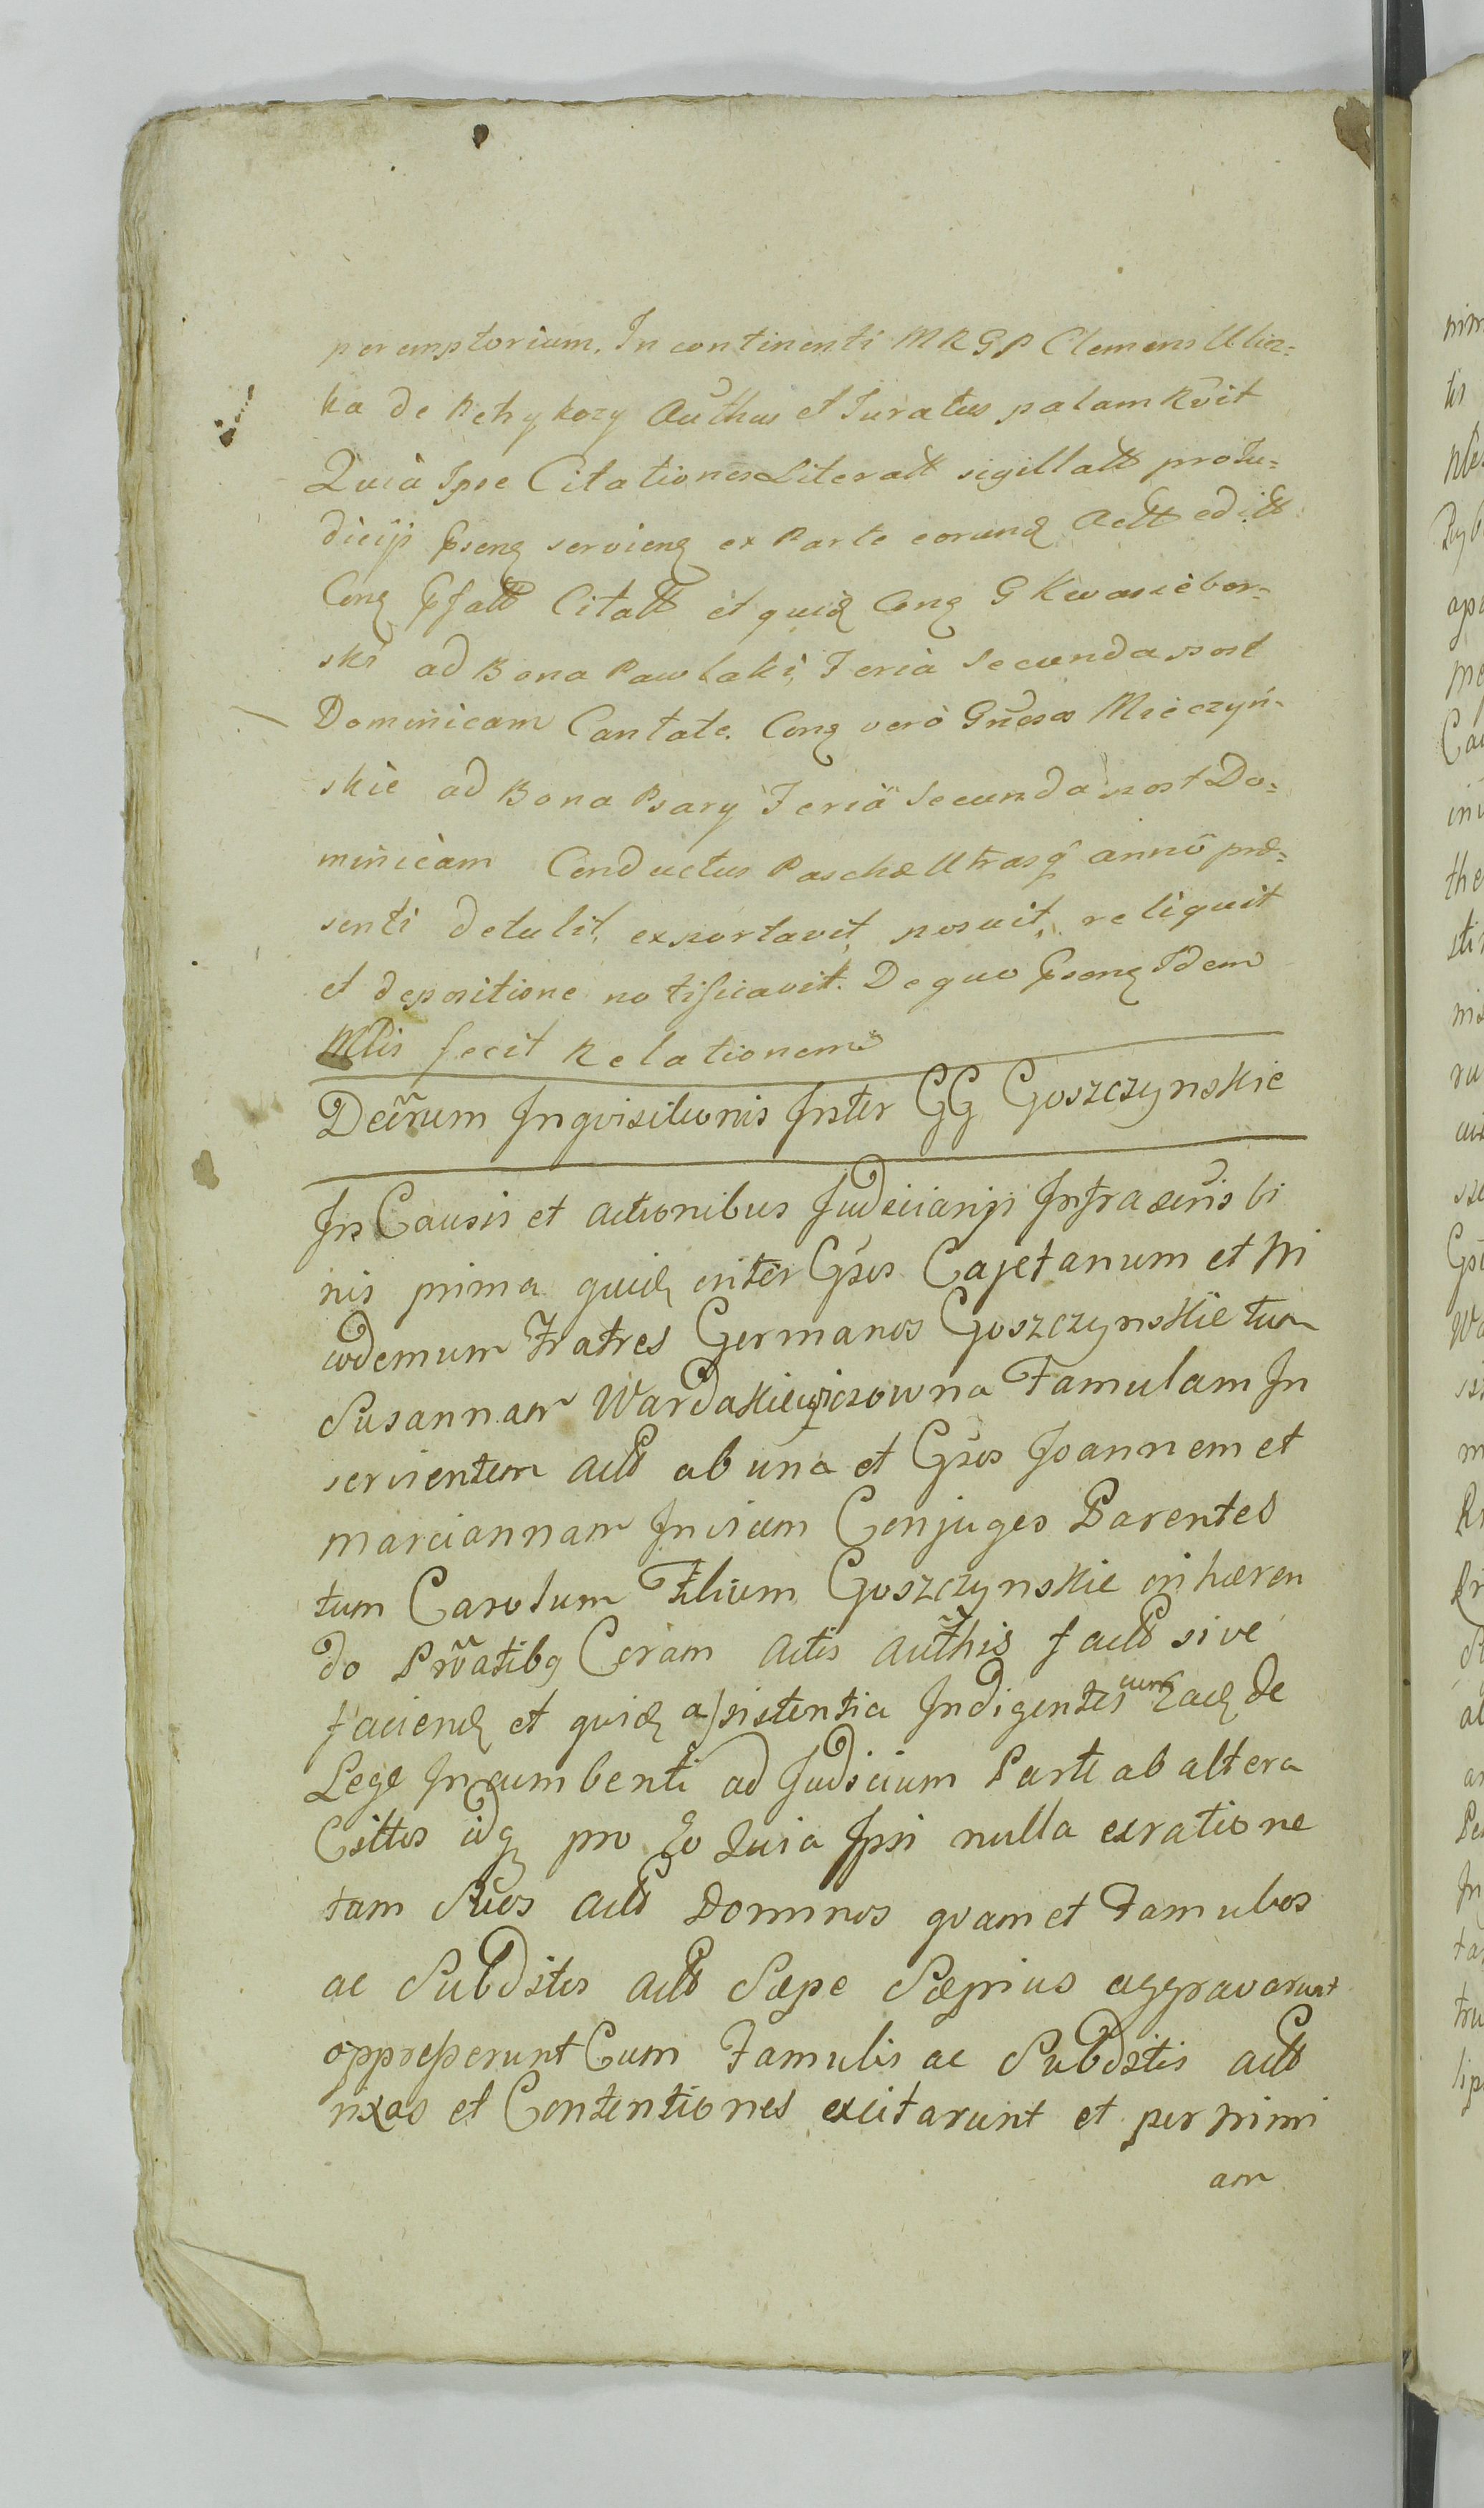 peremptorium. In continenti MRGP Clemens Ulicz=
ka de Retrykozy Authus et Juratus palam Rvit
Quia Ipse Citationes Literatt sigillatt pro Ju=
dicijs servienq ex Parte eorunq Actt editt
Conq Citatt et quiq Conq G Kwasiebor=
ski ad Bona Pawlaki, Feria Secunda post
Dominicam Cantate. Conq verò Gnosos Mieczyń=
skie ad Bona Psary Feria Secunda post Do=
minicam Conductus Paschæ Utrasq anno præ=
senti detulit, exportavit, posuit, reliquit
et depositione notificavit. De quo Idem
Mlis fecit Relationem
Decrum Inqvisitionis Inter GG Goszczynskie
In Causis et actionibus Judiciarijs Infra bi
nis prima quidq inter Gsos Cajetanum et Ni
codemum Fratres Germanos Goszczynskie tum
Susannam Wardakiewiczowna Famulam In
servientem actt ab una et Gsos Joannem et
Mariannam Invicem Conjuges Parentes
tum Carolum Filium Goszczynskie inhæren
do Prvatibq Coram Actis authis factt sive
facienq et quidq assistentia Indigentes cum Eadq de
Lege Incumbenti ad Judicium Parte ab altera
Cittos idq pro Eo Quia Ipsi nulla exratione
tam Suos actt Dominos qvam et Famulos
ac Subditos actt Sæpe Sæpius aggravarunt
oppresserunt Cum Famulis ac Subditis actt
rixas et Contentiones excitarunt et per nimi
am